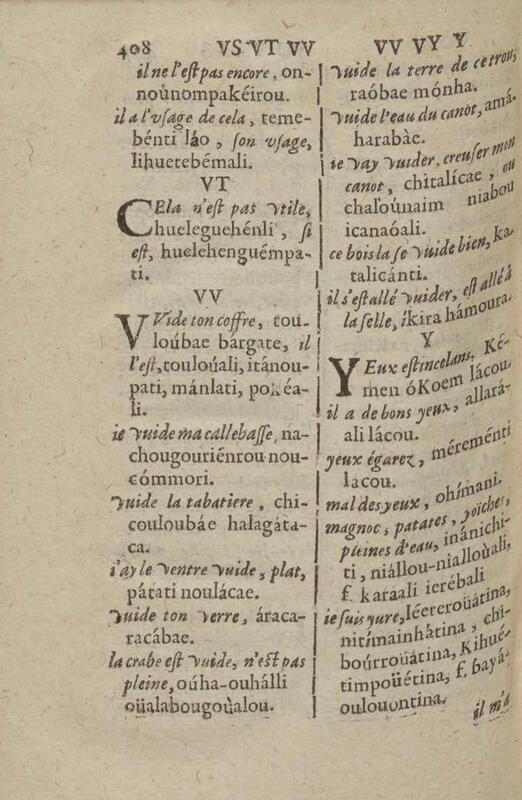 408 VS VT VV
il ne l'est pas encore, on-
noúnompakéirou.
il a l'vsage de cela, teme-
bénti láo, son vsage,
lihuetebémali.
VT
CEla n'est pas vtile,
hueleguehénli, si
est, huelehenguémpa-
ti.
VV
VVide ton coffre, tou-
loúbae bárgate, il
l'est, toulouáli, itánou-
pati, mánlati, pokéa-
li.
ie vuide ma callebasse, na-
chougouriénrou nou-
cómmori.
vuide la tabatiere, chi-
couloubáe halagáta-
ca.
i'ay le ventre vuide, plat,
pátati noulácae.
vuide ton verre, áraca-
racábae.
la crabe est vuide, n'est pas
pleine, oúha-ouhálli
oüalabougoùalou.
VV VY Y
vuide la terre de ce trou,
raóbae mónha.
vuide l'eau du canot, amá-
harabàe.
ie vay vuider, creuser mon
canot, chitalícae, ou
chaloúnaim niabou
icanaóali.
ce bois la se vuide bien, ka-
talicánti.
il s'est allé vuider, est allé à
la selle, íkira hámoura.
Y
YEux estincelans, Ké-
men óKoem lácou.
il a de bons yeux, allará-
ali lácou.
yeux égarez, méreménti
lacou.
mal des yeux, ohímani.
magnoc, patates, yoiches,
pleines d'eau, inánichi-
ti, niállou-niallouàli,
f. karaali ierébali
ie suis yure, léereroüátina,
nitímainhátina, chi-
boúrroüátina, Kihué-
timpoüétina, f. bayá-
oulouontina.
il m'a